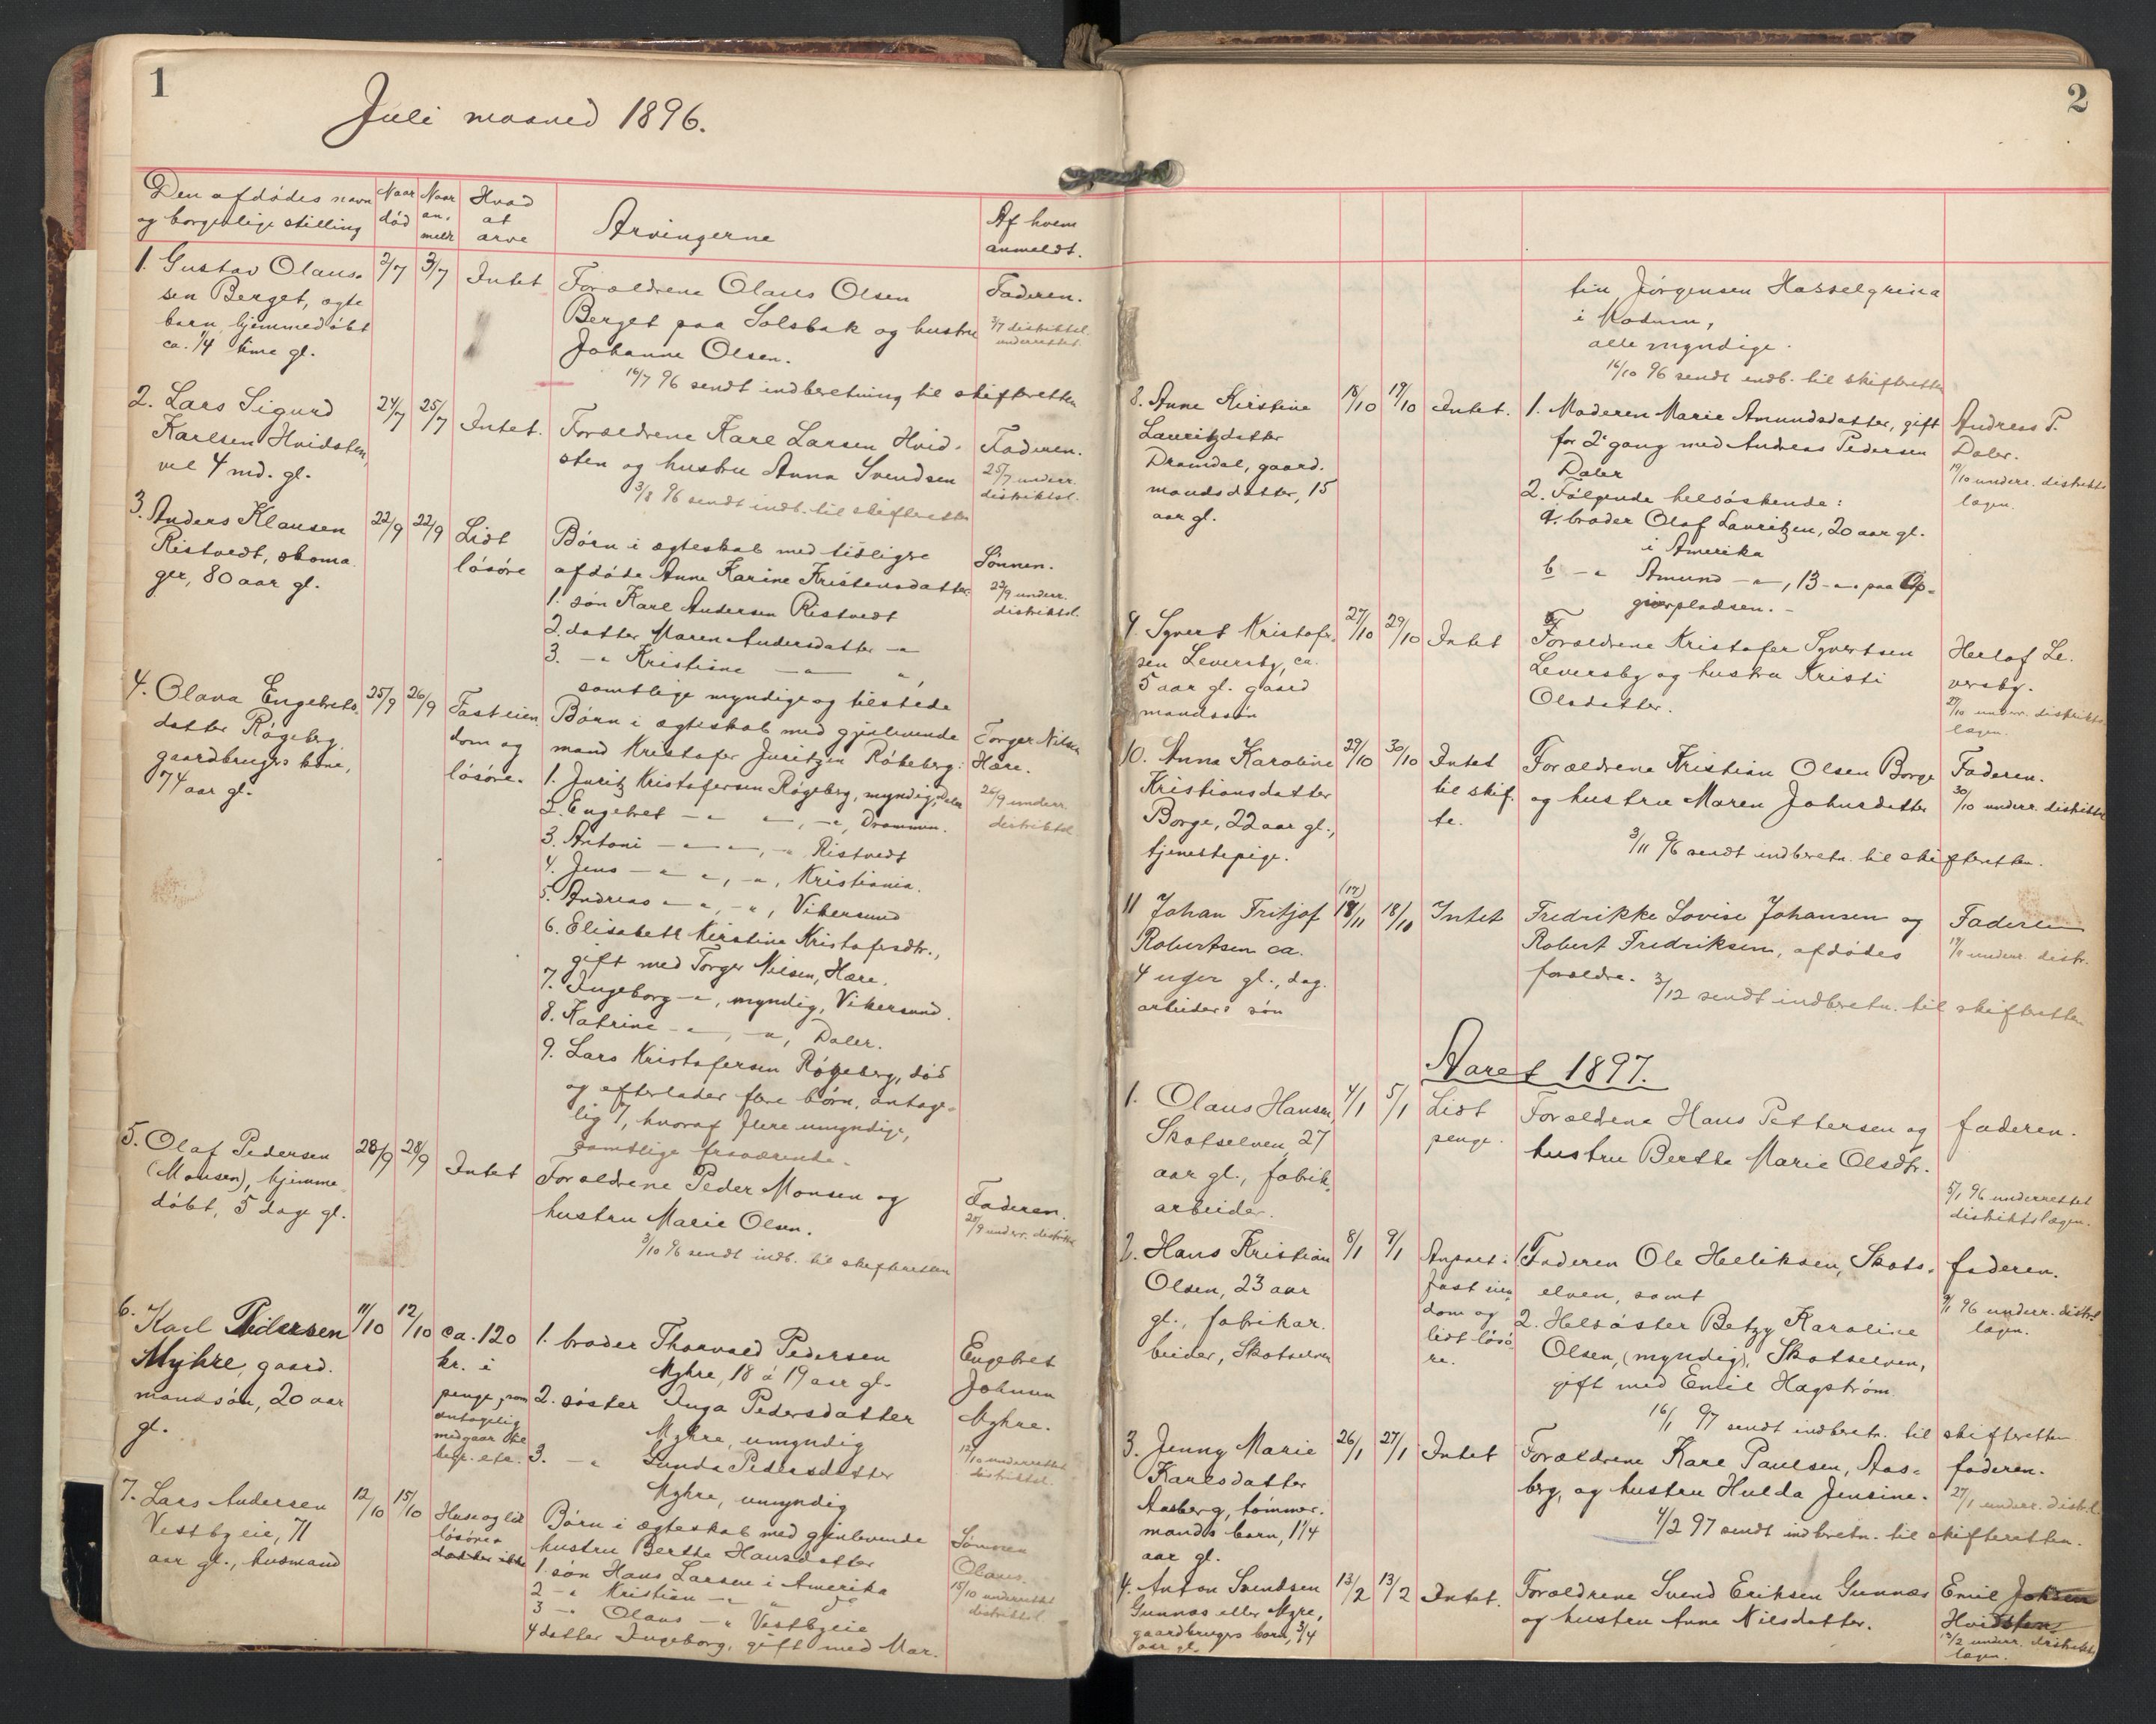 1
Juli maaned 1896.
Den afdødes navn og borgerlige stilling
Naar død
Naar anmeldt
Hvad at arve
Arvingerne
Af hvem anmeldt.
1. Gustav Olaus-
sen Berget, ægte
barn, hjemmedøbt
ca. 1/4 time gl.
2/7
3/7
Intet
Forældrene Olaus Olsen
Berget paa Solsbak og hustru
Johanne Olsen.
16/7 96 sendt indberetning til skifteretten
Faderen.
3/7 distriktsl.
underrettet.
2. Lars Sigurd
Karlsen Hvidsten,
vel 4 md. gl.
24/7
25/7
Intet.
Forældrene Karl Larsen Hvid-
sten og hustru Anna Svendsen
3/8 96 sendt indb. til skifteretten
Faderen.
25/7 underr.
distriktsl.
3. Anders Klausen
Ristvedt, skoma
ger, 80 aar gl.
22/9
22/9
Lidt
løsøre
Børn i ægteskab med tidligere
afdøde Anne Karine Kristensdatter
1. søn Karl Andersen Ristvedt
2. datter Maren Andersdatter —"—
3. —"— Kristine —"— ",
samtlige myndige og tilstede
Sønnen.
22/9 underr.
distriktsl.
4. Olava Engebrets-
datter Røgeberg,
gaardbrugers kone,
74 aar gl.
25/9
26/9
Fast eien
dom og
løsøre.
Børn i ægteskab med gjenlevende
mand Kristofer Juritzen Røkeberg:
1. Juritz Kristofersen Røgeberg, myndig, Daler
2. Engebret —"— —"—, —"—, Drammen.
3. Antoni —"— —"—, —"— Ristvedt
4. Jens —"— ", —"—, Kristiania.
5. Andreas —"— ", —"—, Vikersund
6. Elisabeth Kirstine Kristofersdtr.,
gift med Torger Nilsen, Hære.
7. Ingeborg —"—, myndig, Vikersund.
8. Katrine —"—, —"—, Daler.
9. Lars Kristofersen Røgeberg, død
og efterlader flere børn, antage-
lig 7, hvoraf flere umyndige,
samtlige fraværende.
Torger Nilsen
Hære.
26/9 underr.
distriktsl.
5. Olaf Pedersen
(Monsen), hjemme
døbt, 5 dage gl.
28/9
28/9
Intet
Forældrene Peder Monsen og
hustru Marie Olsen.
3/10 96 sendt indb. til skifteretten
Faderen.
28/9 underr. distrikts
6. Karl Pedersen
Myhre, gaard-
mandssøn, 20 aar
gl.
11/10
12/10
ca. 120
kr. i
penge, som
antagelig
medgaar til
begr. etc.
1. broder Thorvald Pedersen
Myhre, 18 á 19 aar gl.
2. søster Inga Pedersdatter
Myhre, umyndig
3. —"— Gunda Pedersdatter
Myhre, umyndig
Engebret
Johnsen
Myhre.
12/10 underrettet
distriktsl.
7. Lars Andersen
Vestbyeie, 71
aar gl., husmand
12/10
15/10
Huse og lidt
løsøre
Børn i ægteskab med gjenlevende
hustru Berthe Hansdatter
1. søn Hans Larsen i Amerika
2 —"— Kristian —"— " do
3 —"— Olaus —"— Vestbyeie
4 datter Ingeborg, gift med Mar-
Sønnen
Olaus.
15/10 underrettet
distriktsl.
2
tin Jørgensen Hasselgrina
i Modum,
alle myndige.
16/10 96 sendt indb. til skifteretten
8. Anne Kirstine
Lauritzdatter
Dramdal, gaard-
mandsdatter, 15
aar gl.
18/10
19/10
Intet.
1. Moderen Marie Amundsdatter, gift
for 2' gang med Andreas Pedersen
Daler
2. Følgende helsøskende:
a. broder Olaf Lauritzen, 20 aar gl.
i Amerika
b —"— Amund —"—, 13 —"— paa Op-
gierpladsen. -
Andreas P.
Daler.
19/10 underr. distrikts
lægen.
9. Syvert Kristofer-
sen Leversby, ca.
5 aar gl. gaard
mandssøn
27/10
29/10
Intet
Forældrene Kristofer Syvertsen
Leversby og hustru Kristi
Olsdatter.
Herlof Le-
versby.
29/10 underr. distrikts
lægen.
10. Anna Karoline
Kristiansdatter
Borge, 22 aar gl.,
tjenestepige.
29/10
30/10
Intet
til skif-
te.
Forældrene Kristian Olsen Borge
og hustru Maren Johnsdatter
3/11 96 sendt indberetn. til skifteretten.
Faderen.
30/10 underr. distriktsl
11 Johan Fritjof
Robertsen ca.
4 uger gl., dag-
arbeiders søn
(17)
18/11
18/10
Intet
Fredrikke Lovise Johansen og
Robert Fredriksen, afdødes
forældre.
3/12 sendt indberetn. til skifteretten
Faderen
underr. distr.
Aaret 1897.
1. Olaus Hansen,
Skotselven, 27
aar gl., fabrik-
arbeider.
4/1
5/1
Lidt
penge.
Forældrene Hans Pettersen og
hustru Berthe Marie Olsdtr.
faderen.
5/1 96 underrettet
distriktslægen.
2. Hans Kristian
Olsen, 23 aar
gl., fabrikar-
beider, Skotselven
8/1
9/1
Anpart i
fast eien
dom og
lidt løsø-
re.
1. Faderen Ole Helliksen, Skots-
elven, samt
2. Helsøster Betzy Karoline
Olsen, (myndig), Skotselven,
gift med Emil Hagstrøm.
16/1 97 sendt indberetn. til skifteretten
faderen.
9/1 96 underr. distrikts
lægen.
3. Jenny Marie
Karlsdatter
Aasberg, tømmer-
mands barn, 1 1/4
aar gl.
26/1
27/1
Intet
Forældrene Karl Paulsen, Aas-
berg, og hustru Hulda Jensine.
4/2 97 sendt indberetn. til skifteretten.
faderen.
27/1 underr. distrl.
4. Anton Svendsen
Gunnæs eller Myre,
gaardbrugers barn, 3/4
aar gl.
13/2
13/2
Intet.
Forældrene Svend Eriksen Gunnæs
og hustru Anne Nilsdatter.
Emil Johnsen
Hvidsten
13/2 underr. distrikts
lægen.